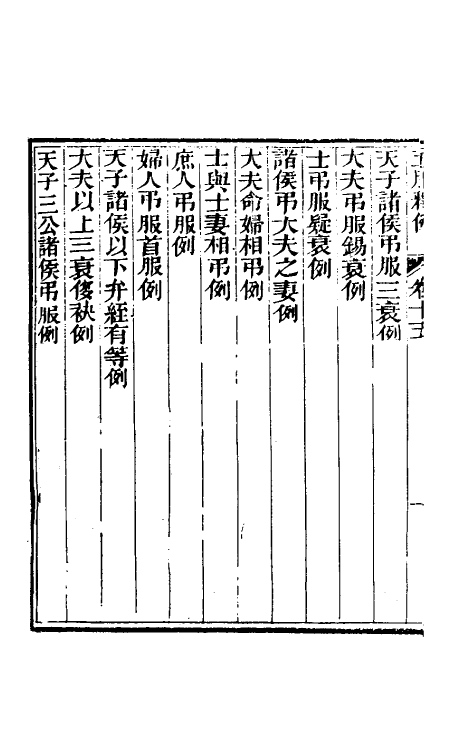 五服釋例 卷十五
天子諸侯弔服三衰例
大夫弔服錫衰例
士弔服疑衰例
諸侯弔大夫之妻例
大夫命婦相弔例
士與士妻相弔例
庶人弔服例
婦人弔服首服例
天子諸侯以下弁絰有等例
大夫以上三衰侈袂例
天子三公諸侯弔服例